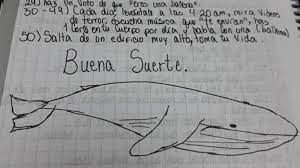 29) haz un voto de que "eres una ballena"
30-49) Cada día, levantate a las 4:20 am, mira videos
de terror, escucha música que "te envían", has
1 corte en tu cuerpo por día y habla con una (ballena)
50) Salta de un edificio muy alto, toma tu vida.
Buena Suerte.